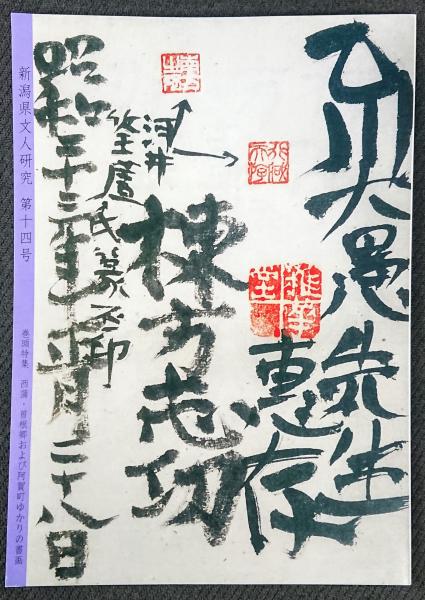 大愚先生
惠存
棟方志功
河井
荃廬氏篆
印
昭和三十三年
月二十八日
新潟県文人研究 第十四号
巻頭特集 西蒲・曽根郷および阿賀町ゆかりの書画